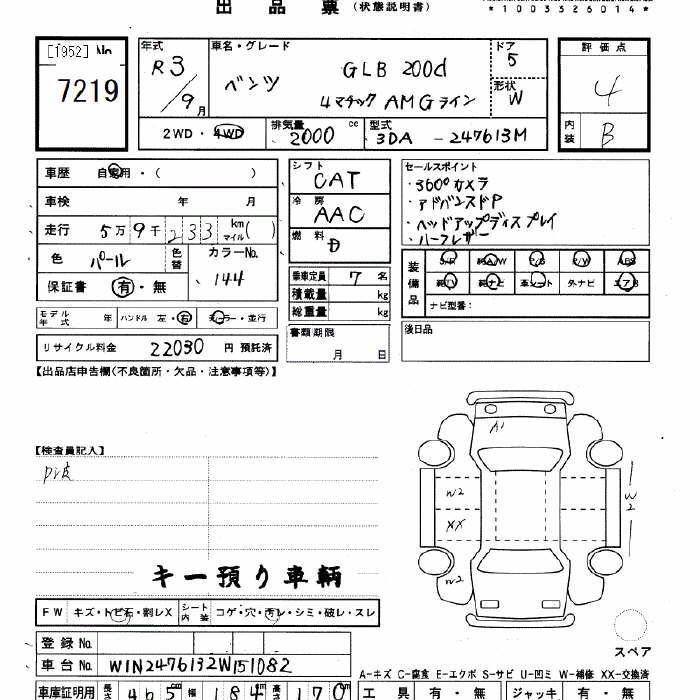 出 品 票 (状態説明書)
*1003326014*
[1952] No
7219
年式
R3/9月
車名・グレード
ベンツ GLB 200d
4マチック AMGライン
ドア
5
形状
W
評価点
4
内装
B
2WD・4WD
排気量 2000 cc
型式 3DA - 247613M
車歴 自家用・( )
車検 年 月
走行 5万9千233 km マイル( )
色 パール 色替 カラーNo. 144
保証書 有・無
モデル年式 年 ハンドル 左・右 ディーラー・並行
リサイクル料金 22030 円 預託済
シフト CAT
冷房 AAC
燃料 D
乗車定員 7 名
積載量 kg
総重量 kg
書類期限
月 日
セールスポイント
・360°カメラ
・アドバンスドP
・ヘッドアップディスプレイ
・ハーフレザー
装備品
S/R 純A/W P/S P/W ABS
純TV 純ナビ 革シート 外ナビ エアB
ナビ型番:
後日品
【出品店申告欄(不良箇所・欠品・注意事項等)】
【検査員記入】
A1
W2
XX
W2
W2
スペア
キー預り車輌
FW キズ・トビ石・割レX シート内装 コゲ・穴・汚レ・シミ・破レ・スレ
登録No.
車台No. W1N2476132W151082
A-キズ C-腐食 E-エクボ S-サビ U-凹ミ W-補修 XX-交換済
車庫証明用 長さ 465cm 幅 184cm 高さ 170cm
工具 有・無 ジャッキ 有・無